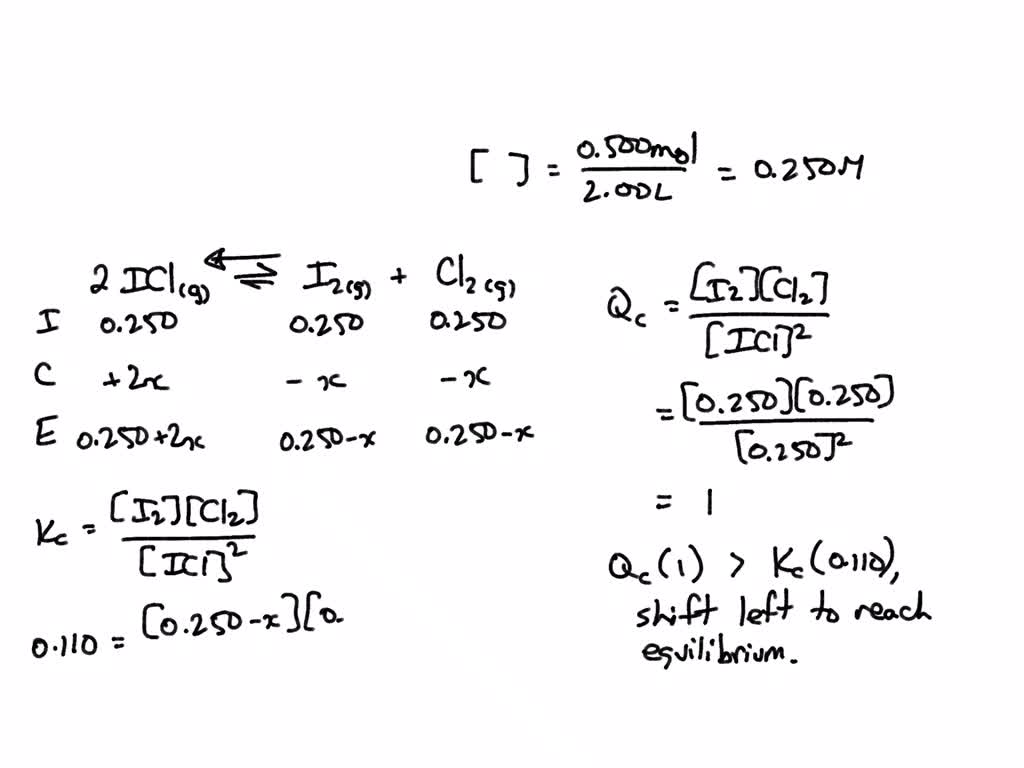 [ ] = 0.500mol / 2.00L = 0.250M
2 ICl(g) ⇌ I2(g) + Cl2(g)
I 0.250 0.250 0.250
C +2x -x -x
E 0.250+2x 0.250-x 0.250-x
Kc = [I2][Cl2] / [ICl]²
0.110 = [0.250-x][0.
Qc = [I2][Cl2] / [ICl]²
= [0.250][0.250] / [0.250]²
= 1
Qc(1) > Kc(0.110),
shift left to reach
equilibrium.